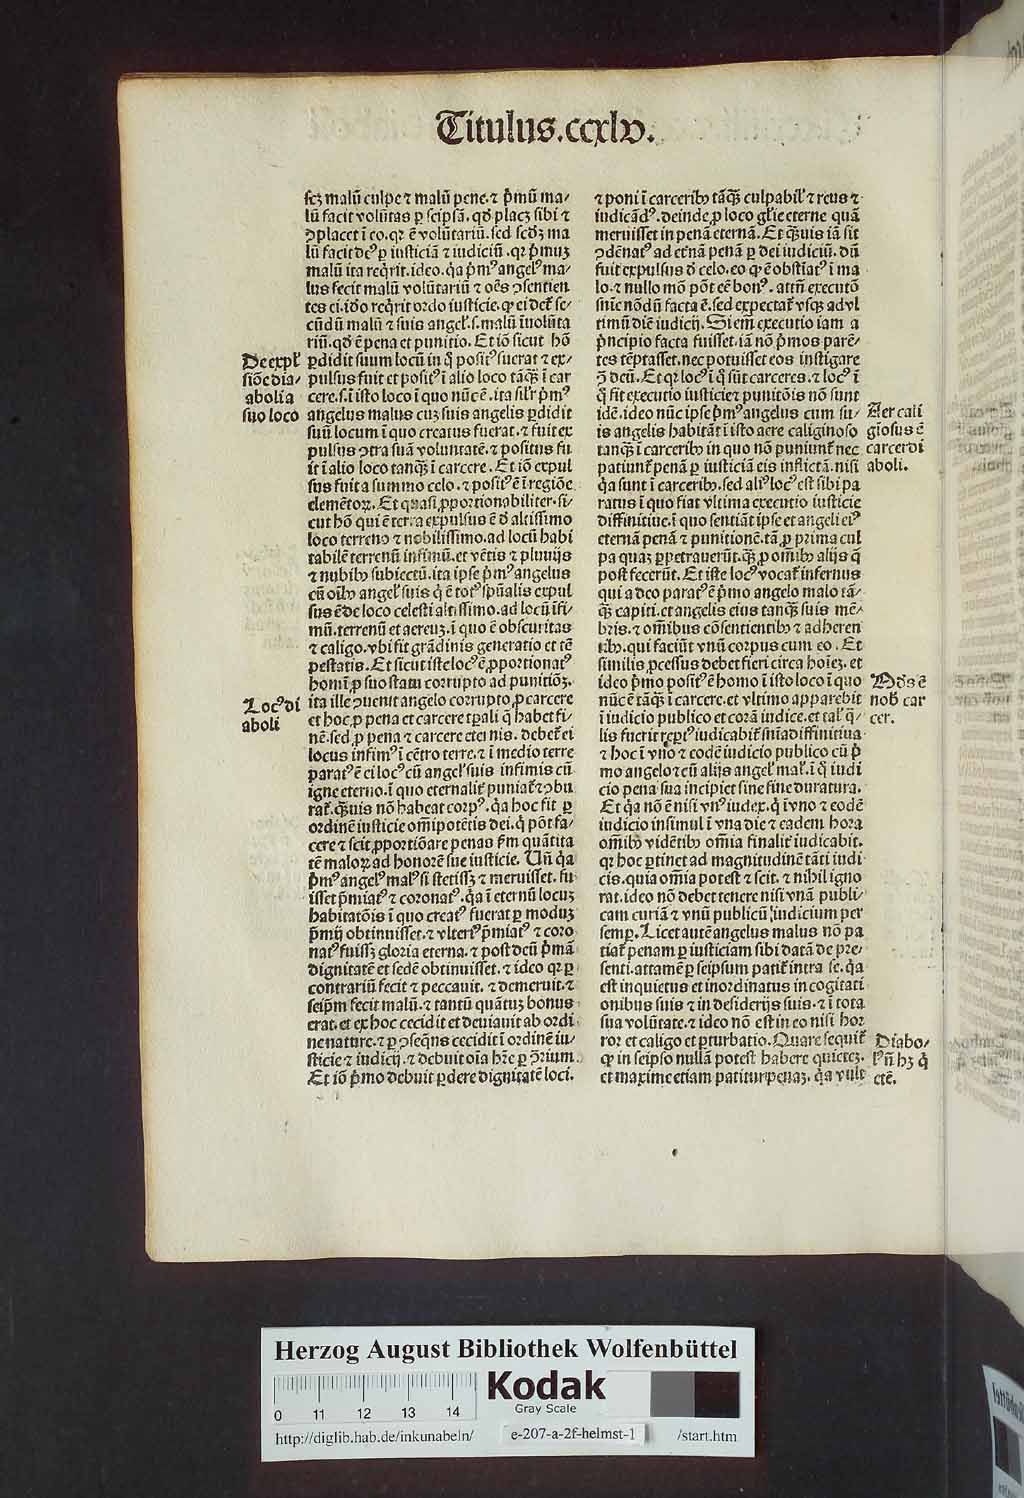 Titulus.ccxlv.
scꝫ malū culpe ⁊ malū pene. ⁊ p̄mū ma⸗
lū facit volūtas ꝑ seipsā. qd̄ placꝫ sibi ⁊
ꝯplacet ī eo. qꝛ ē volūtariū. sed scd̓ꝫ ma
lū facit deꝰ ꝑ iusticiā ⁊ iudiciū. qꝛ p̄muꝫ
malū ita reqͥrit. ideo. qͥa p̄mꝰ angelꝰ ma⸗
lus fecit malū volūtariū ⁊ oēs ꝯsentien
tes ei. iđo reqͥrit ordo iusticie. ꝙ ei det̄ se⸗
cūdū malū ⁊ suis angel̓. s. malū īuolūta
riū. qd̄ ē pena et punitio. Et iō sicut hō
De expl̓
siōe dia⸗
aboli a
suo loco
ꝑdidit suum locū in qͦ positꝰ fuerat ⁊ ex⸗
pulsus fuit et positꝰ ī alio loco tāqꝫ̄ ī car
cere. s. ī isto loco ī quo nūc ē. ita sil̓r p̄mꝰ
angelus malus cuꝫ suis angelis ꝑdidit
suū locum ī quo creatus fuerat. ⁊ fuit ex
pulsus ꝯtra suā voluntatē. ⁊ positus fu
it ī alio loco tanqꝫ̄ ī carcere. Et iō expul
sus fuit a summo celo. ⁊ positꝰ ē ī regiōe
elemētoꝝ. Et quasi ꝓportionabiliter. si⸗
cut hō qui ē terra expulsus ē d̓ altissimo
loco terreno ⁊ nobilissimo. ad locū habi
tabilē terrenū infimū. et vētis ⁊ pluuijs
⁊ nubibꝰ subiectū. ita ipse p̄mꝰ angelus
cū oībꝰ angel̓ suis qͥ ē totꝰ spūalis expul
sus ē de loco celesti altissimo. ad locū īfi⸗
mū. terrenū et aereuꝫ. ī quo ē obscuritas
⁊ caligo. vbi fit grādinis generatio et tē
pestatis. Et sicut iste locꝰ ē ꝓportionatꝰ
homī ꝓ suo statu corrupto ad punitiōꝫ.
Locꝰ di
aboli
ita ille ꝯuenit angelo corrupto ꝓ carcere
et hoc ꝓ pena et carcere tꝑali qͥ habet fi⸗
nē. sed ꝓ pena ⁊ carcere eternis. debet̄ ei
locus infimꝰ ī cētro terre. ⁊ ī medio terre
paratꝰ ē ei locꝰ cū angel̓ suis infimis cū
igne eterno. ī quo eternalit̄ puniat̄ ⁊ ꝯbu
rat̄. qꝫ̄uis nō habeat corpꝰ. qͥa hoc fit ꝑ
ordinē iusticie omīpotētis dei. qͥ pōt fa⸗
cere ⁊ scit ꝓportiōare penas ẜm quātita
tē maloꝝ ad honorē sue iusticie. Un̄ qͥa
p̄mꝰ angelꝰ malꝰ si stetissꝫ ⁊ meruisset. fu
isset p̄miatꝰ ⁊ coronatꝰ. qͥa ī eternū locuꝫ
habitatōis ī quo creatꝰ fuerat ꝑ moduꝫ
p̄mij obtinuisset. ⁊ vlteriꝰ p̄miatꝰ ⁊ coro
natꝰ fuissꝫ gloria eterna. ⁊ post deū p̄mā
dignitatē et sedē obtinuisset. ⁊ ideo qꝛ ꝑ
contrariū fecit ⁊ peccauit. ⁊ demeruit. ⁊
seip̄m fecit malū. ⁊ tantū quātuꝫ bonus
erat. et ex hoc cecidit et deuiauit ab ordi
ne nature. ⁊ ꝑ ꝯseqͤns cecidit ī ordinē iu⸗
sticie ⁊ iudicij. ⁊ debuit oīa hr̄e ꝑ ꝯrium.
Et iō p̄mo debuit ꝑdere dignitatē loci.
⁊ poni ī carceribꝰ tāqꝫ̄ culpabil̓ ⁊ reus ⁊
iudicādꝰ. deinde ꝓ loco gl̓ie eterne quā
meruisset in penā eternā. Et qꝫ̄uis iā sit
ꝯdēnatꝰ ad etnā penā ꝑ dei iudiciū. dū
fuit expulsus d̓ celo. eo ꝙ ē obstīatꝰ ī ma
lo. ⁊ nullo mō pōt eē bonꝰ. attn̄ executō
sn̄ie nōdū facta ē. sed expectat̄ vsqꝫ ad vl
timū diē iudicij. Si em̄ executio iam a
pͥncipio facta fuisset. iā nō p̄mos parē⸗
tes tēptasset. nec potuisset eos instigare
ꝯ deū. Et qꝛ locꝰ ī qͦ sūt carceres. ⁊ locꝰ ī
qͦ fit executio iusticie ⁊ punitōis nō sunt
Aer cali
gīosus ē
carcer di
aboli.
idē. ideo nūc ipse p̄mꝰ angelus cum su⸗
is angelis habitāt ī isto aere caliginoso
tanqꝫ̄ ī carceribꝰ in quo nō puniunt̄ nec
patiunt̄ penā ꝑ iusticiam eis inflictā. nisi
qͥa sunt ī carceribꝰ. sed aliꝰ locꝰ est sibi pa
ratus ī quo fiat vltima executio iusticie
diffinitiue. ī quo sentiāt ipse et angeli eiꝰ
eternā penā ⁊ punitionē. tā ꝓ prima cul
pa quaꝫ ꝑpetrauerūt. qꝫ̄ ꝓ omībꝰ alijs qͥ
post fecerūt. Et iste locꝰ vocat̄ infernus
qui a deo paratꝰ ē p̄mo angelo malo tā⸗
qꝫ̄ capiti. et angelis eius tanqꝫ̄ suis mē⸗
bris. ⁊ omībus cōsentientibꝰ ⁊ adheren
tibꝰ. qui faciūt vnū corpus cum eo. Et
similis ꝓcessus debet fieri circa hoīeꝫ. et
Mūdꝰ ē
nob̓ car
cer.
ideo p̄mo positꝰ ē homo ī isto loco ī quo
nūc ē tāqꝫ̄ ī carcere. et vltimo apparebit
ī iudicio publico et corā iudice. et tal̓ qͣ⸗
lis fuerit reptꝰ iudicabit̄ sn̄ia diffinitiua
⁊ hoc ī vno ⁊ eodē iudicio publico cū p̄
mo angelo ⁊ cū alijs angel̓ mal̓. ī qͦ iudi
cio pena sua incipiet sine fine duratura.
Et qͥa nō ē nisi vnꝰ iudex. qͥ ī vno ⁊ eodē
iudicio insimul ī vna die ⁊ eadem hora
omībꝰ vidētibꝰ omīa finalit̄ iudicabit.
qꝛ hoc ꝑtinet ad magnitudinē tāti iudi
cis. quia omīa potest ⁊ scit. ⁊ nihil igno
rat. ideo nō debet tenere nisi vnā publi⸗
cam curiā ⁊ vnū publicū iudicium per
semꝑ. Licet autē angelus malus nō pa
tiat̄ penam ꝑ iusticiam sibi datā de pre⸗
senti. attamē ꝑ seipsum patit̄ intra se. qͥa
est inquietus et inordinatus in cogitati
onibus suis ⁊ in desiderijs suis. ⁊ ī tota
sua volūtate. ⁊ ideo nō est in eo nisi hor
ror et caligo et ꝑturbatio. Quare sequit̄
Diabo⸗
lꝰ n̄ hꝫ qͥ
etē.
ꝙ in seipso nullā potest habere quieteꝫ.
et maxime etiam patitur penaꝫ. qͥa vult
Herzog August Bibliothek Wolfenbüttel
Kodak
Gray Scale
0 11 12 13 14
http://diglib.hab.de/inkunabeln/ e-207-a-2f-helmst-1 /start.htm